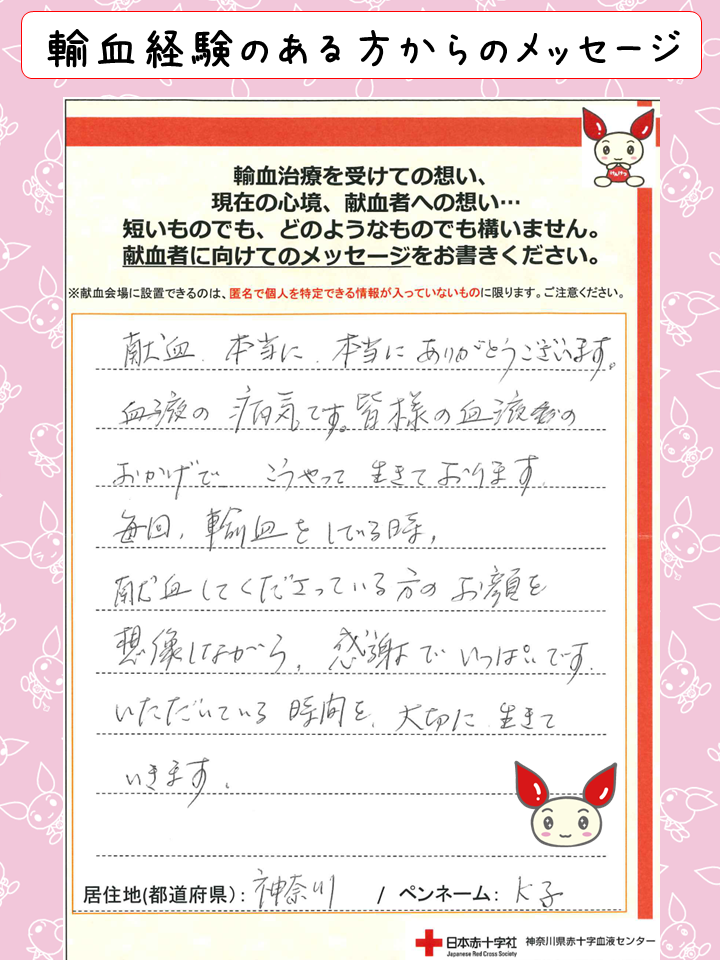 輸血経験のある方からのメッセージ
輸血治療を受けての想い、
現在の心境、献血者への想い…
短いものでも、どのようなものでも構いません。
献血者に向けてのメッセージをお書きください。
※献血会場に設置できるのは、匿名で個人を特定できる情報が入っていないものに限ります。ご注意ください。
献血、本当に、本当にありがとうございます。
血液の病気です。皆様の血液の
おかげで こうやって生きております。
毎回、輸血をしている時、
献血してくださっている方のお顔を
想像しながら、感謝でいっぱいです。
いただいている時間を、大切に生きて
いきます。
居住地(都道府県): 神奈川 / ペンネーム: K子
日本赤十字社 神奈川県赤十字血液センター
Japanese Red Cross Society